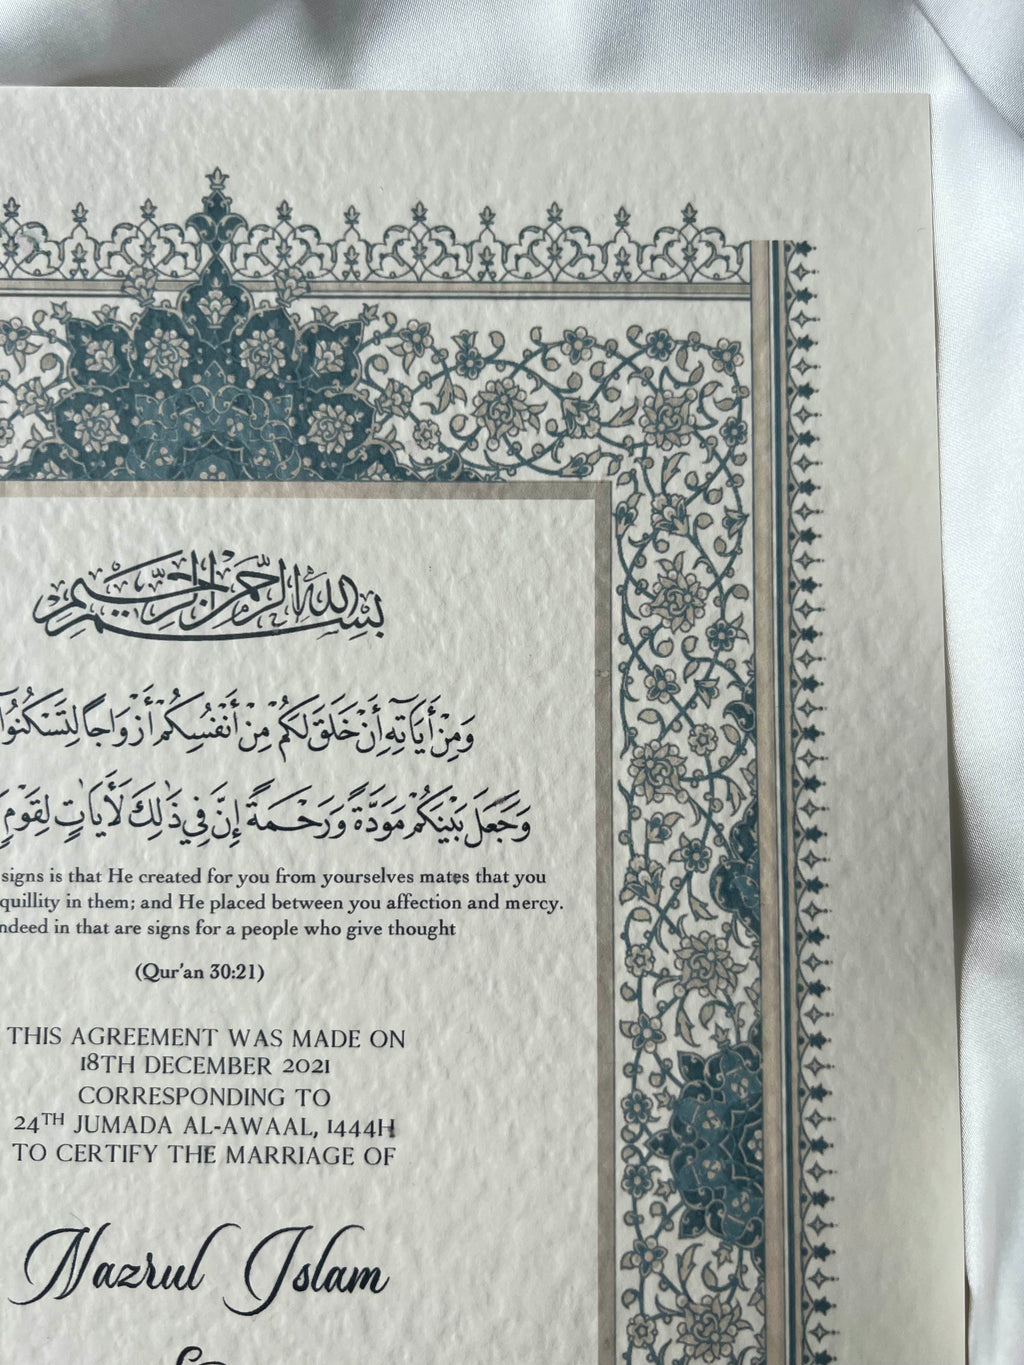 بِسْمِ اللهِ الرَّحْمٰنِ الرَّحِيمِ
وَمِنْ أَيَاتِهِ أَنْ خَلَقَ لَكُمْ مِنْ أَنْفُسِكُمْ أَزْوَاجًا لِتَسْكُنُوا
وَجَعَلَ بَيْنَكُمْ مَوَدَّةً وَرَحْمَةً إِنَّ فِي ذَٰلِكَ لَأَيَاتٍ لِقَوْمٍ
signs is that He created for you from yourselves mates that you
quillity in them; and He placed between you affection and mercy.
ndeed in that are signs for a people who give thought
(Qur'an 30:21)
THIS AGREEMENT WAS MADE ON
18TH DECEMBER 2021
CORRESPONDING TO
24TH JUMADA AL-AWAAL, 1444H
TO CERTIFY THE MARRIAGE OF
Nazrul Islam